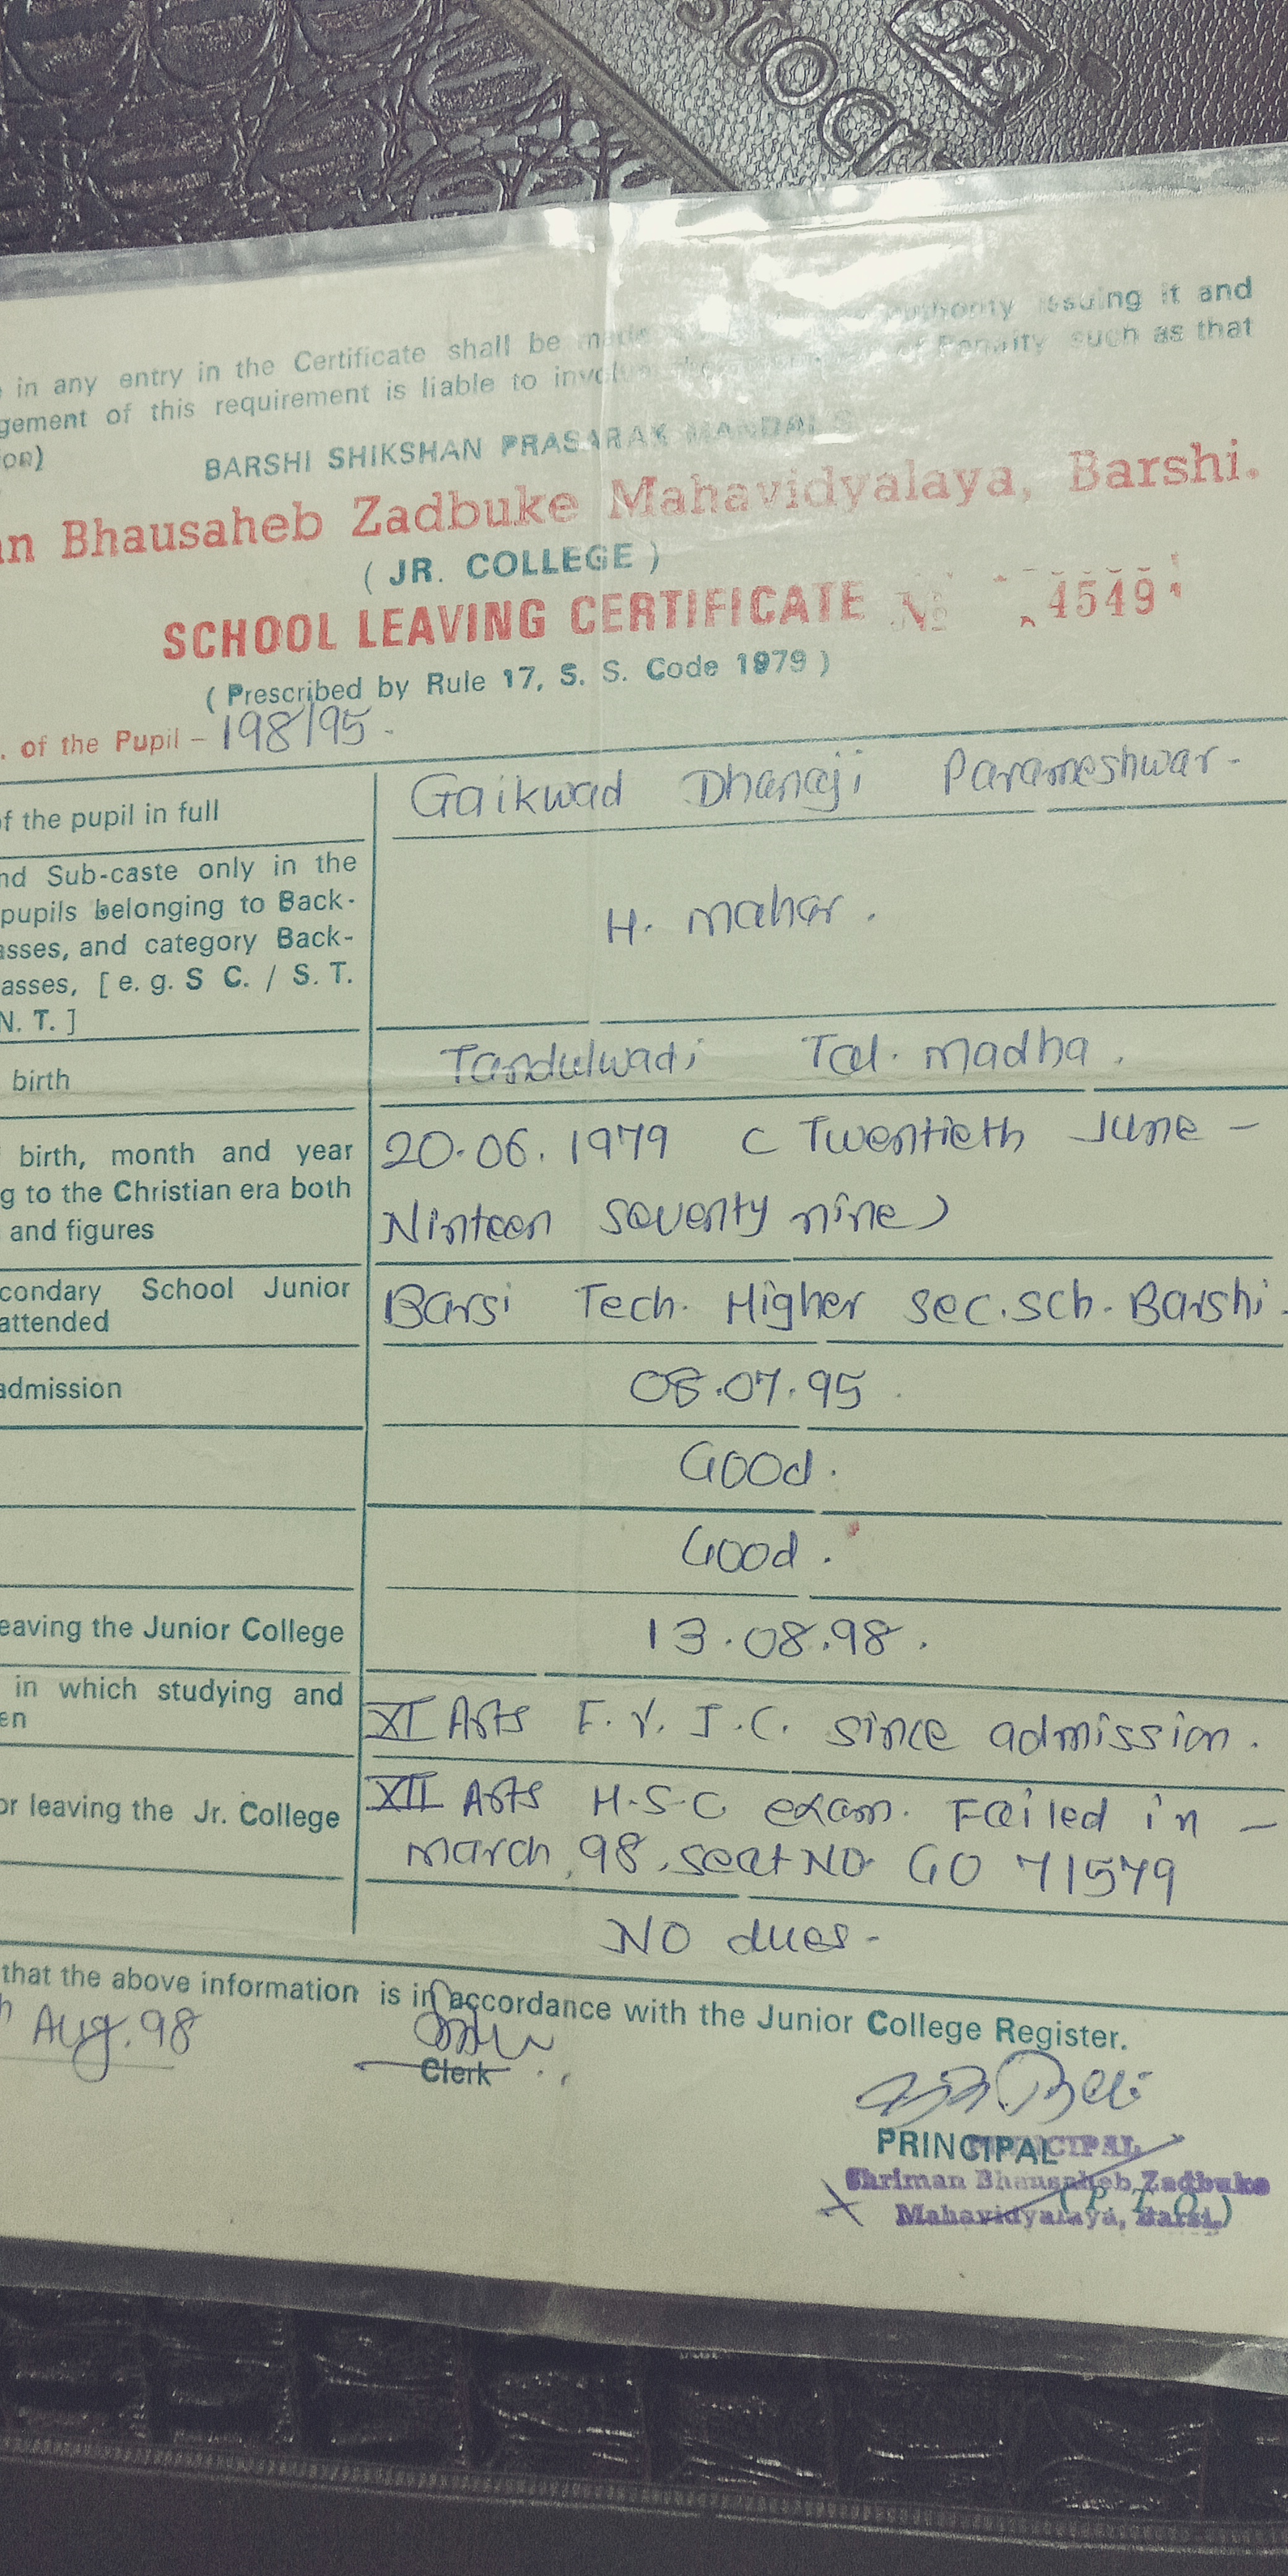 in any entry in the Certificate shall be made authority issuing it and
gement of this requirement is liable to involve of Penalty such as that
on)
BARSHI SHIKSHAN PRASARAK MANDAL'S
an Bhausaheb Zadbuke Mahavidyalaya, Barshi.
( JR. COLLEGE )
SCHOOL LEAVING CERTIFICATE № 4549
( Prescribed by Rule 17, S. S. Code 1979 )
. of the Pupil – 198/95 -
f the pupil in full Gaikwad Dhanaji Parameshwar-
nd Sub-caste only in the
pupils belonging to Back-
asses, and category Back-
asses, [ e. g. S C. / S. T.
N. T. ]
H. mahar.
birth Tandulwadi Tal. madha.
birth, month and year 20.06.1979 ( Twentieth June –
g to the Christian era both
and figures Ninteen seventy nine)
condary School Junior
attended Barsi Tech. Higher sec.sch. Barshi.
admission 08.07.95
Good.
Good.
eaving the Junior College 13.08.98.
in which studying and
en XI Arts F.Y.J.C. since admission.
or leaving the Jr. College XII Arts H.S.C. exam. Failed in –
march 98. seat No. GO 71579
NO dues-
that the above information is in accordance with the Junior College Register.
Aug. 98
Clerk
PRINCIPAL
PRINCIPAL
Shriman Bhausaheb Zadbuke
(P. T. O.)
Mahavidyalaya, Barsi.